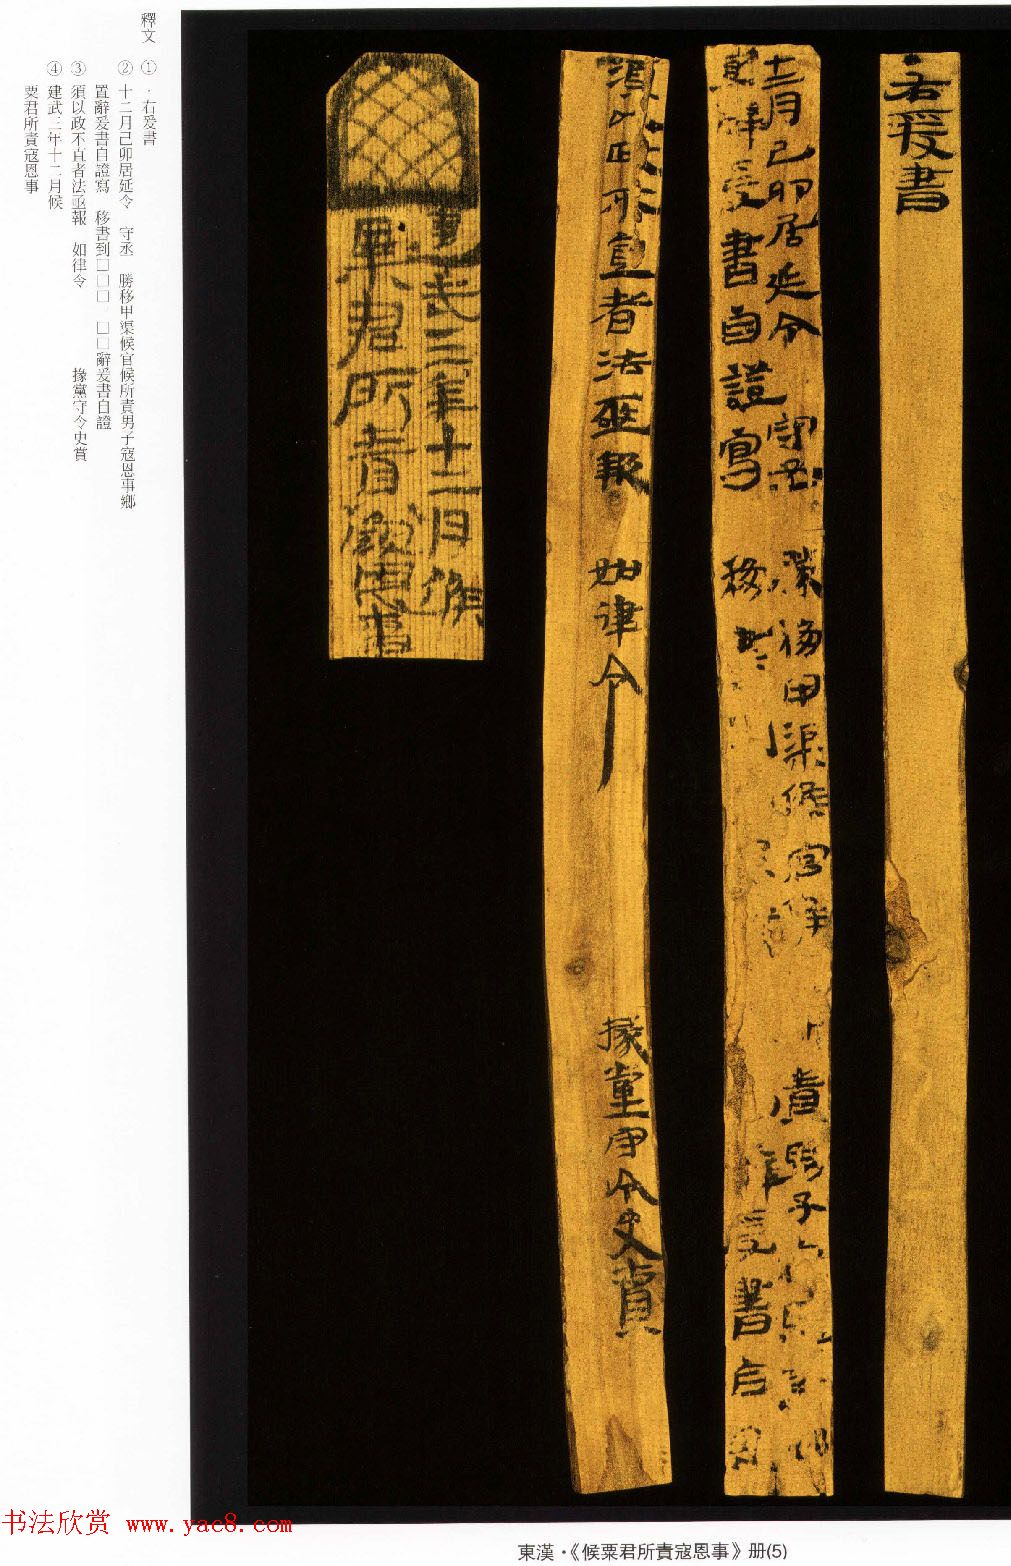 釋文
①．右爰書
②十二月己卯居延令　守丞　勝移甲渠候官候所責男子寇恩事鄉
置辭爰書自證寫　移書到□□□　□□辭爰書自證
③須以政不直者法亟報　如律令　　掾黨守令史賞
④建武三年十二月候
粟君所責寇恩事
右爰書
十二月己卯居延令　守丞　勝移甲渠候官候　責男子
辭爰書自證寫　移　爰書自
須以政不直者法亟報　如律令　　掾黨守令史賞
建武三年十二月候
粟君所責寇恩事
书法欣赏 www.yac8.com
東漢·《候粟君所責寇恩事》册(5)